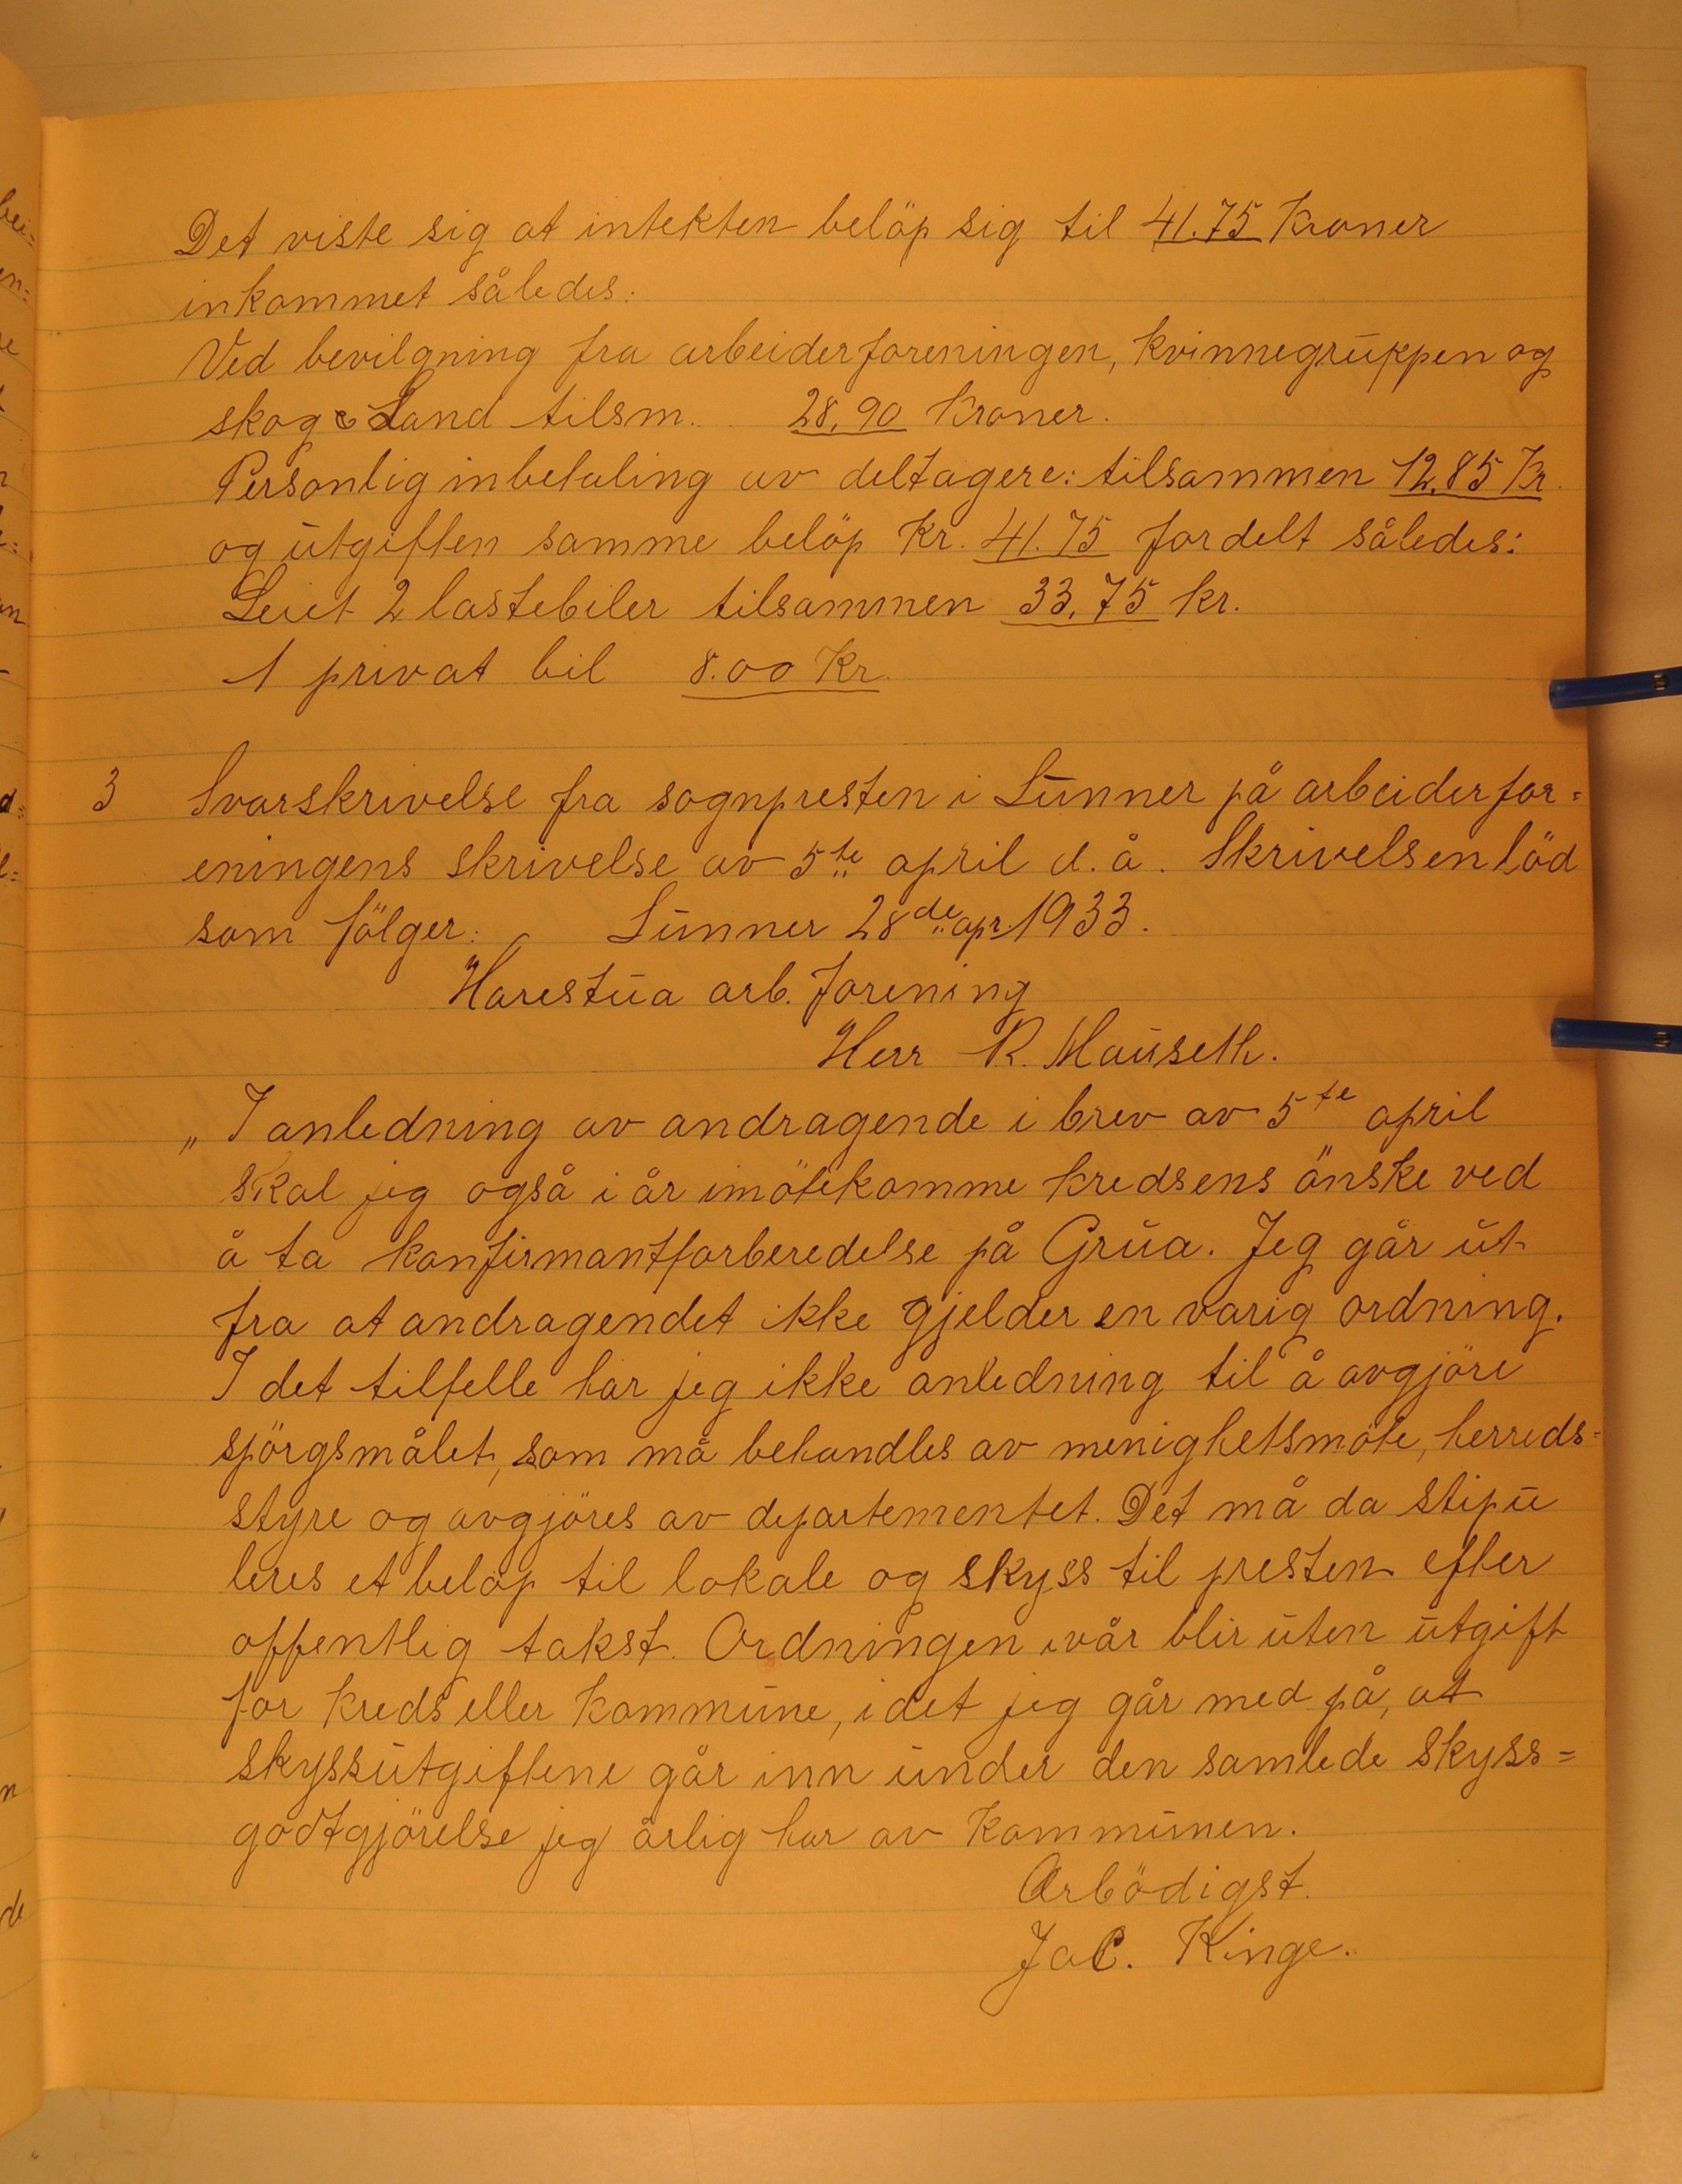 Det viste sig at intekten beløp sig til 41.75 Kroner
inkommet således:
Ved bevilgning fra arbeiderforeningen, kvinnegruppen og
skog & Land tilsm. 28,90 Kroner.
Personlig inbetaling av deltagere: tilsammen 12,85 Kr.
og utgiften samme beløp Kr. 41.75 fordelt således:
Leiet 2 lastebiler tilsammen 33,75 kr.
1 privat bil 8.00 Kr.
3 Svarskrivelse fra sognpresten i Lunner på arbeiderfor=
eningens skrivelse av 5te april d.å. Skrivelsen löd
som fölger: Lunner 28de apr 1933.
Harestua arb. forening
Herr R. Mauseth.
„I anledning av andragende i brev av 5te april
skal jeg også i år imötekomme kredsens önske ved
å ta konfirmantforberedelse på Grua. Jeg går ut
fra at andragendet ikke gjelder en varig ordning.
I det tilfelle har jeg ikke anledning til å avgjöre
spörgsmålet, som må behandles av menighetsmöte, herreds=
styre og avgjöres av departementet. Det må da stipu
leres et beløp til lokale og skyss til presten efter
offentlig takst. Ordningen i vår blir uten utgift
for kreds eller kommune, idet jeg går med på, at
skyssutgiftene går inn under den samlede skyss=
godtgjörelse jeg årlig har av kommunen.
Ærbödigst.
Jac. Kinge.